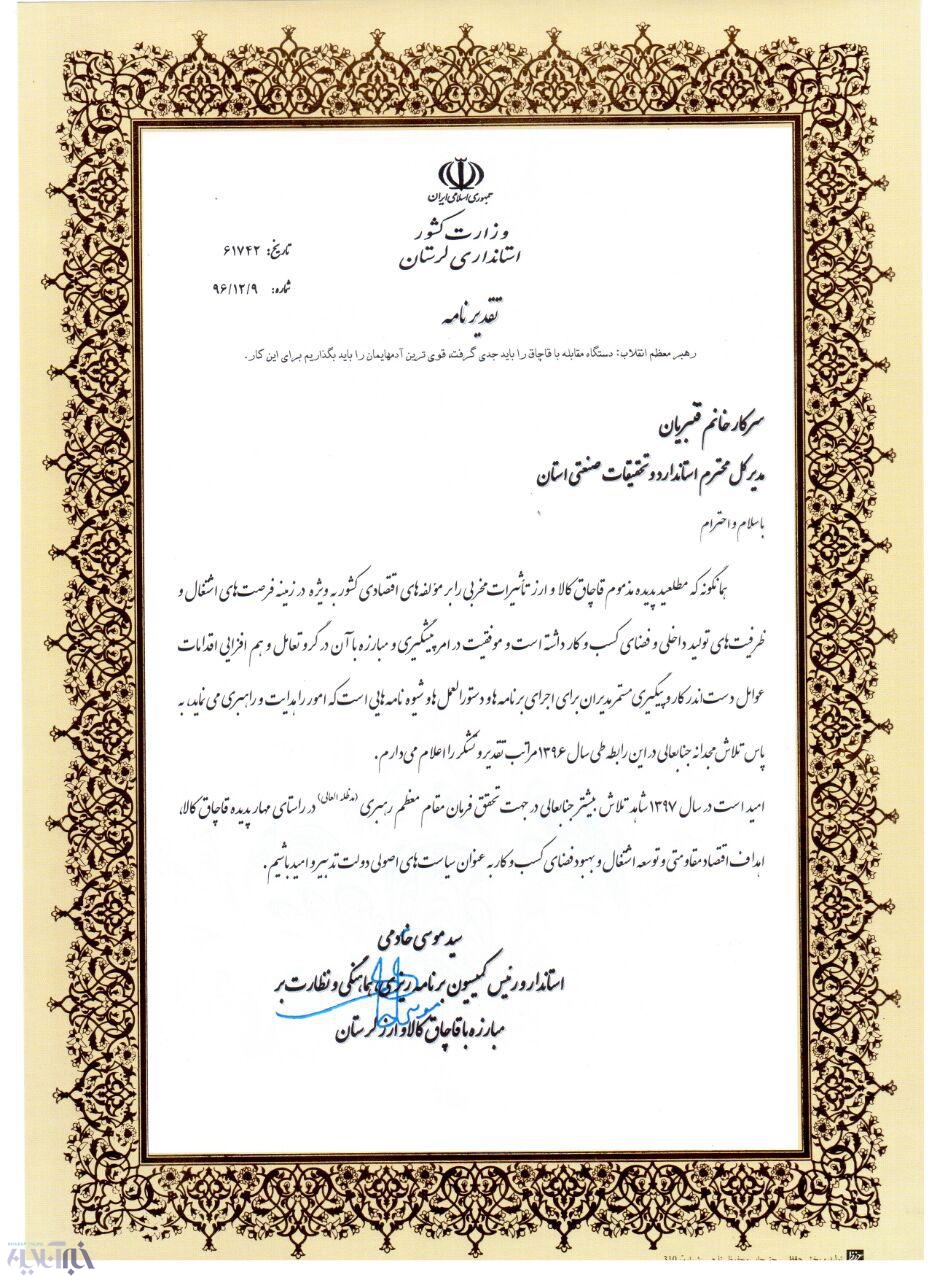 جمهوری اسلامی ایران
وزارت کشور
استانداری لرستان
تاریخ: ۶۱۷۴۲
شماره: ۹۶/۱۲/۹
تقدیرنامه
رهبر معظم انقلاب: دستگاه مقابله با قاچاق را باید جدی گرفت، قوی ترین آدمهایمان را باید بگذاریم برای این کار.
سرکار خانم قنبریان
مدیر کل محترم استاندارد و تحقیقات صنعتی استان
با سلام و احترام
همانگونه که مطلعید پدیده مذموم قاچاق کالا و ارز تأثیرات مخربی را بر مؤلفه های اقتصادی کشور به ویژه در زمینه فرصت های اشتغال و
ظرفیت های تولید داخلی و فضای کسب و کار داشته است و موفقیت در امر پیشگیری و مبارزه با آن در گرو تعامل و هم افزایی اقدامات
عوامل دست اندر کار و پیگیری مستمر مدیران برای اجرای برنامه ها و دستورالعمل ها و شیوه نامه هایی است که امور را هدایت و راهبری می نماید، به
پاس تلاش مجدانه جنابعالی در این رابطه طی سال ۱۳۹۶ مراتب تقدیر و تشکر را اعلام می دارم.
امید است در سال ۱۳۹۷ شاهد تلاش بیشتر جنابعالی در جهت تحقق فرمان مقام معظم رهبری (مدظله العالی) در راستای مهار پدیده قاچاق کالا،
اهداف اقتصاد مقاومتی و توسعه اشتغال و بهبود فضای کسب و کار به عنوان سیاست های اصولی دولت تدبیر و امید باشیم.
سید موسی خادمی
استاندار و رئیس کمیسیون برنامه ریزی، هماهنگی و نظارت بر
مبارزه با قاچاق کالا و ارز لرستان
خبرآنلاین